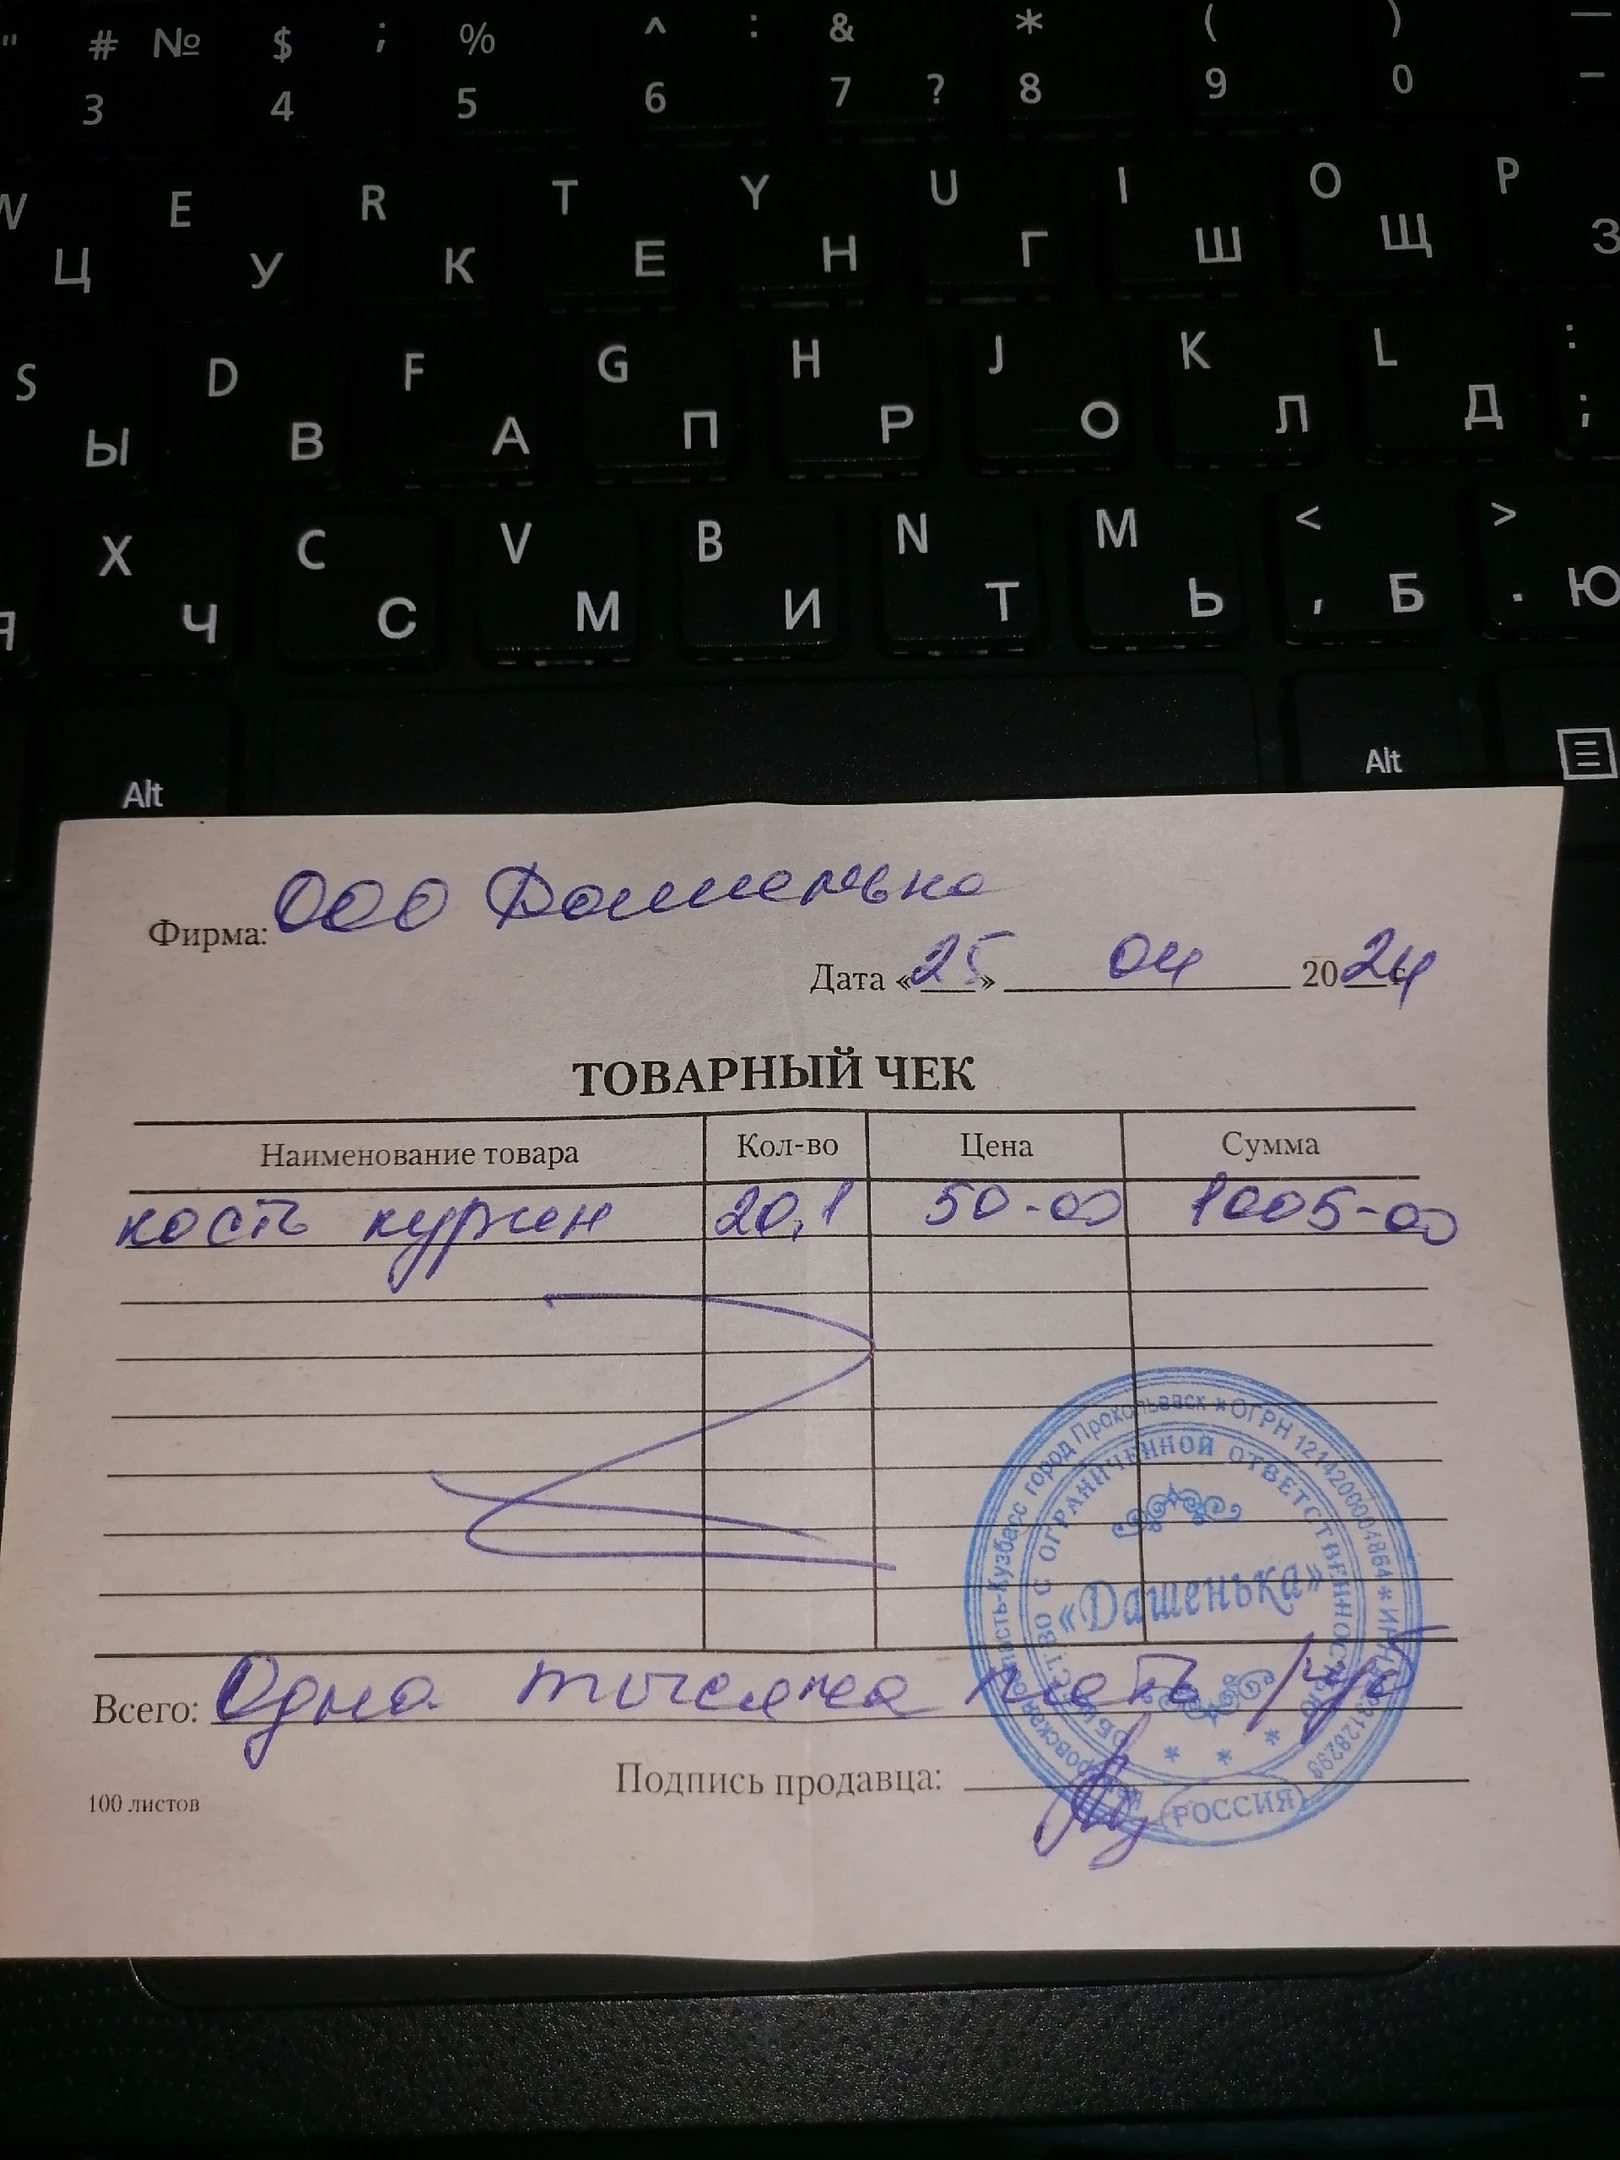 " # № $ ; % ^ : & * ( ) —
3 4 5 6 7 ? 8 9 0 -
W E R T Y U I O P
Ц У К Е Н Г Ш Щ З
S D F G H J K L :
Ы В А П Р О Л Д ;
X C V B N M < >
Я Ч С М И Т Ь , Б . Ю
Alt Alt
Фирма: ООО Дашенька
Дата «25» 04 2024
ТОВАРНЫЙ ЧЕК
Наименование товара Кол-во Цена Сумма
кость курин 20,1 50-00 1005-00
город Прокопьевск * ОГРН 1214200004864 * ИНН
ОБЩЕСТВО С ОГРАНИЧЕННОЙ ОТВЕТСТВЕННОСТЬЮ
«Дашенька»
Всего: Одна тысяча пять руб
Подпись продавца:
РОССИЯ
100 листов